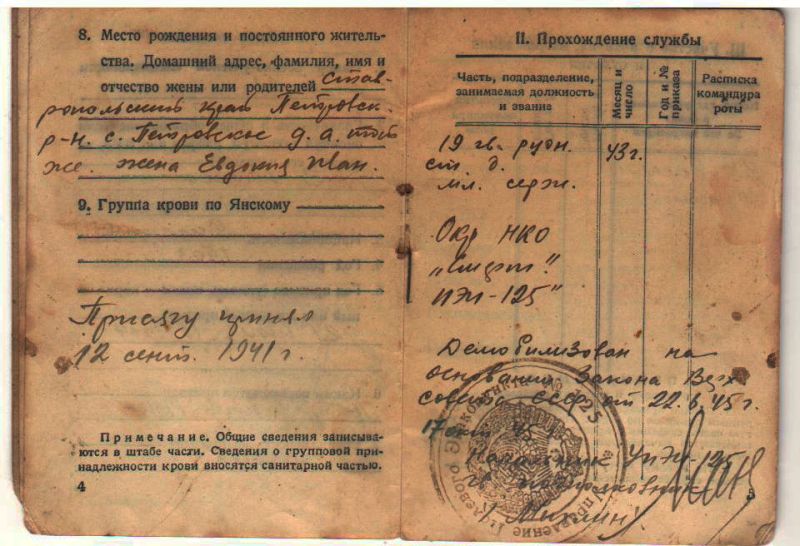 8. Место рождения и постоянного житель-
ства. Домашний адрес, фамилия, имя и
отчество жены или родителей Став-
ропольский край Петровск.
р-н. с. Петровское д. а. тот
же. жена Евдокия Иван.
9. Группа крови по Янскому
Присягу принял
12 сент. 1941 г.
Примечание. Общие сведения записыва-
ются в штабе части. Сведения о групповой при-
надлежности крови вносятся санитарной частью.
4
II. Прохождение службы
Часть, подразделение,
занимаемая должность
и звание
Месяц и
число
Год и №
приказа
Расписка
командира
роты
19 гв. 43г.
мл. серж.
Окр НКО
-125"
Демобилизован на
основании Закона Верх
совета СССР от 22.6.45 г.
17 45
Начальник -125
гв подполковник
5